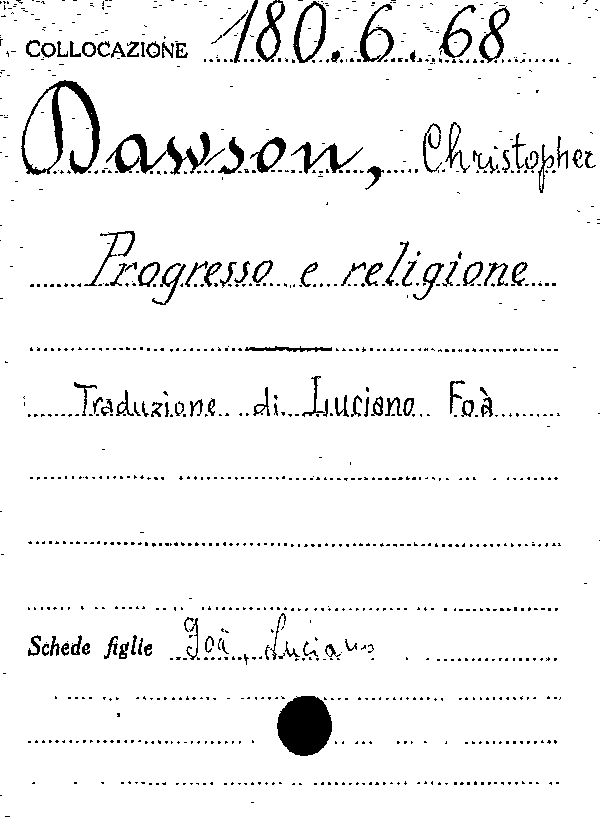 COLLOCAZIONE 180.6.68
Dawson, Christopher
Progresso e religione
Traduzione di Luciano Foà
Schede figlie Foà, Luciano